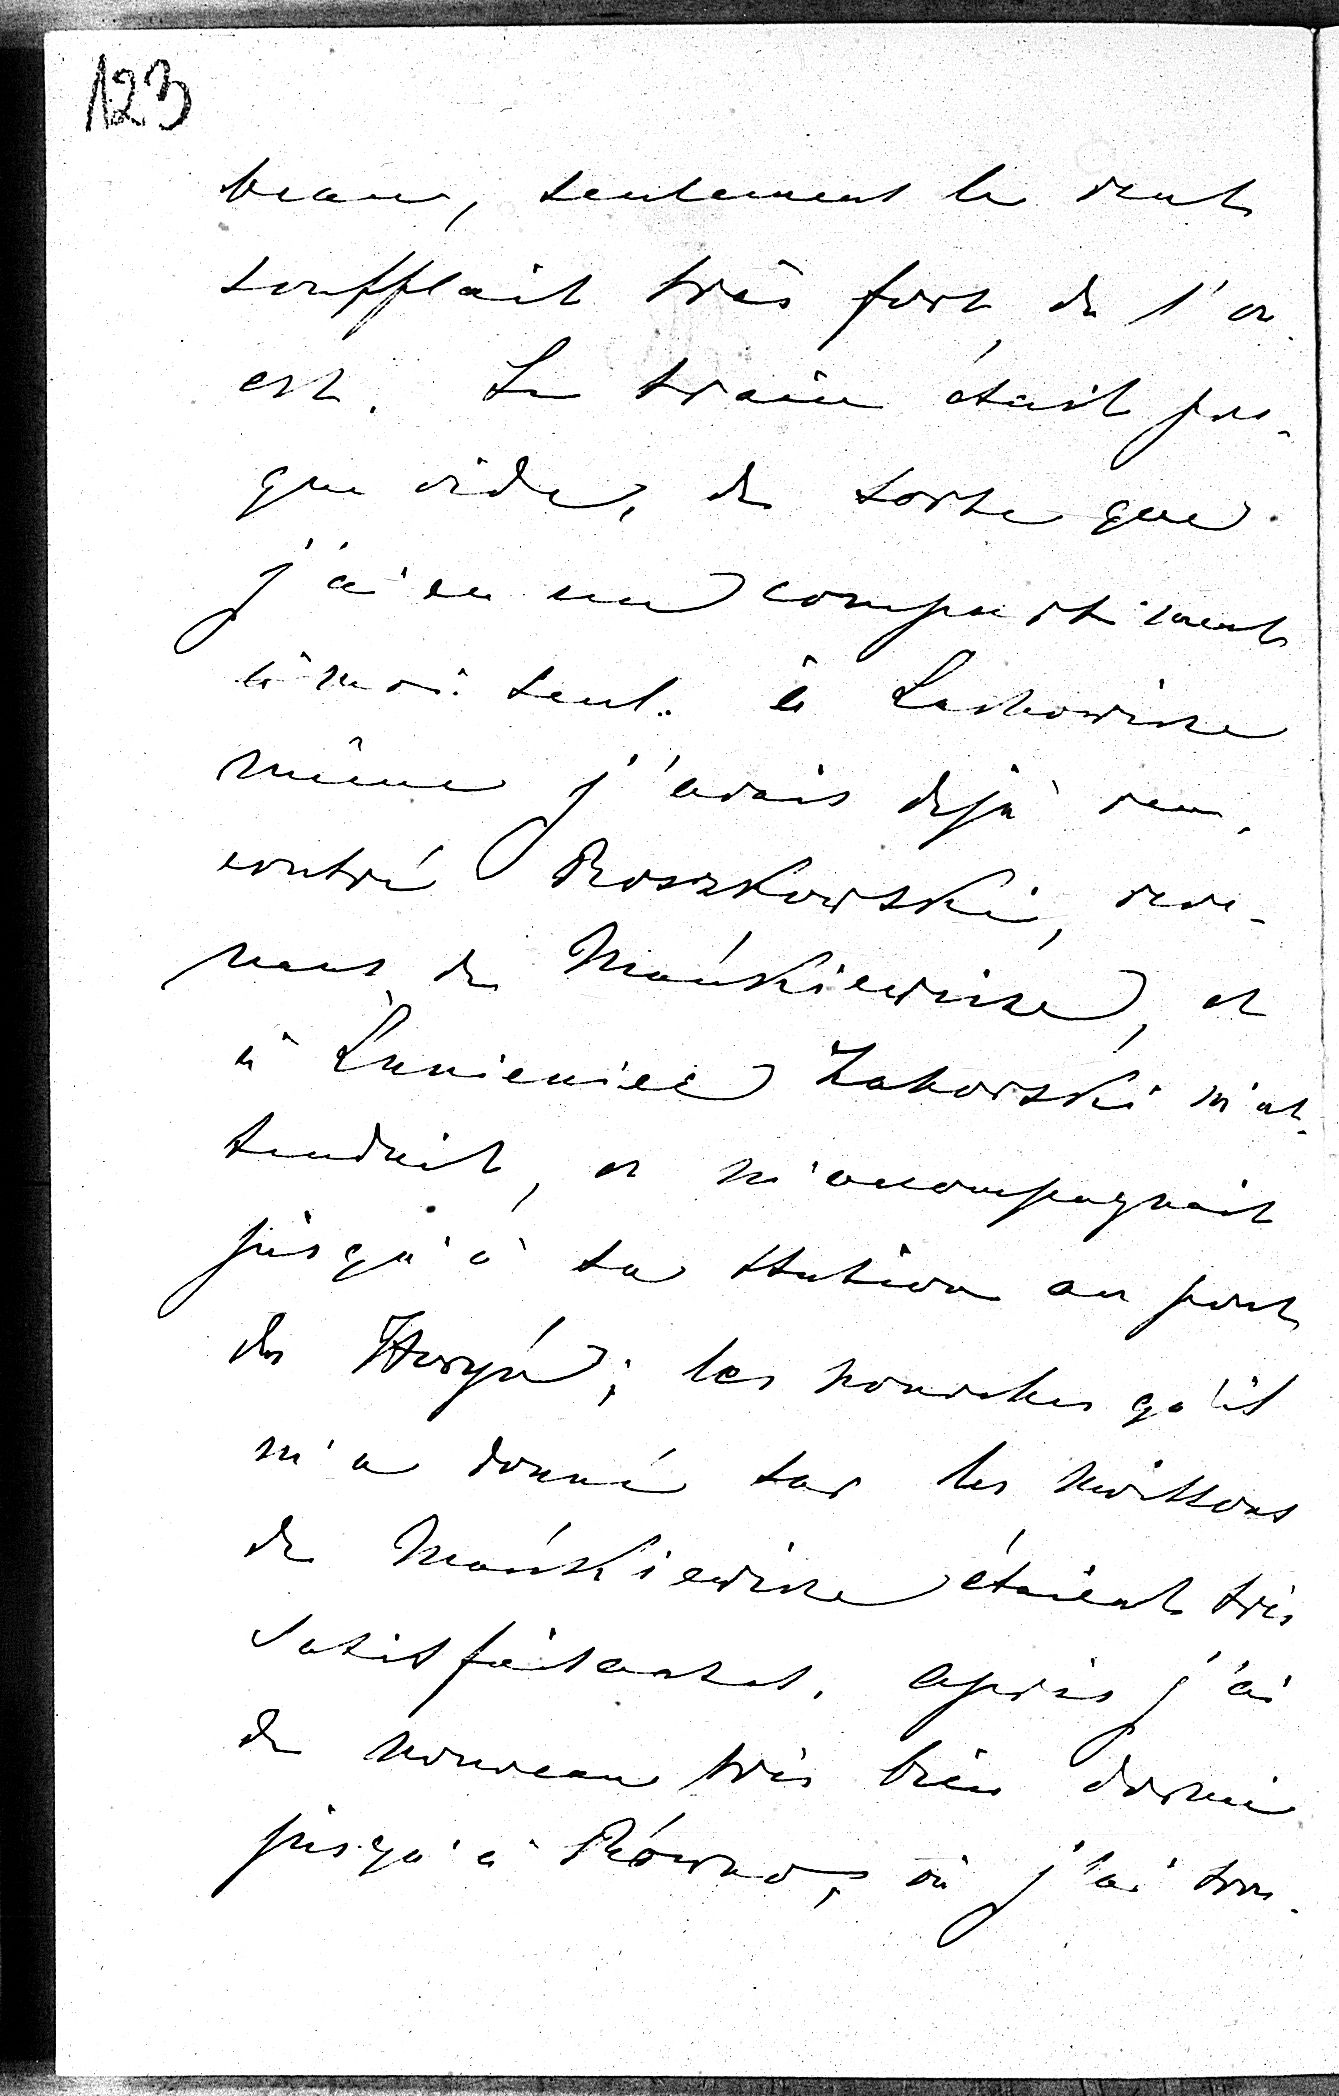 123
beau, seulement le vent
soufflait très fort de l'ou-
est. Le train était pres-
que vide, de sorte que
j'ai eu un compartiment
à moi seul. à Lachowicze
même j'avais déjà ren-
contré Roszkowski, reve-
nant de Mańkiewicze, et
à Łuniniec Zaborski m'at-
tendait, et m'accompagnait
jusqu'à sa station au pont
du Horyń; les nouvelles qu'il
m'a donné sur les moissons
de Mańkiewicze étaient très
satisfaisantes. après j'ai
de nouveau très bien dormi
jusqu'à Równo, où j'ai trou-